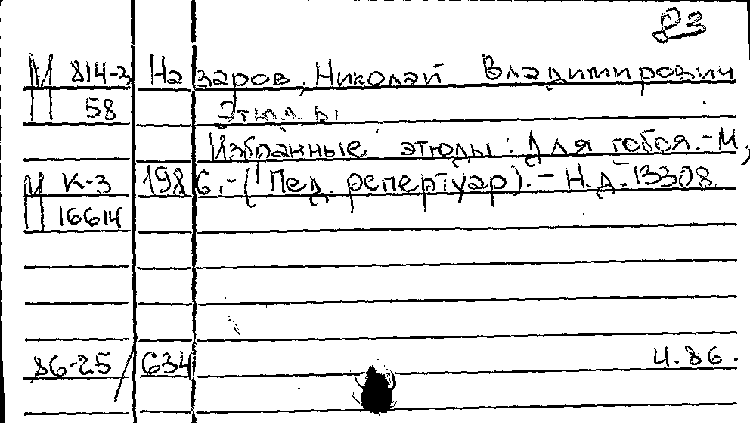 83
М 814-3 Назаров, Николай Владимирович
П 58 Этюды
Избранные этюды: Для гобоя.-М.,
М К-3 1986.-(Пед. репертуар).- Н.Д. 13308.
П 16614
86-25/634 4.86.